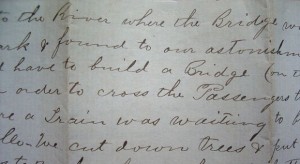 to the River where the Bridge w
ark & found to our astonishm
d have to build a Bridge (on
order to cross the Passengers t
re a Train was waiting to
llo. We cut down trees & put